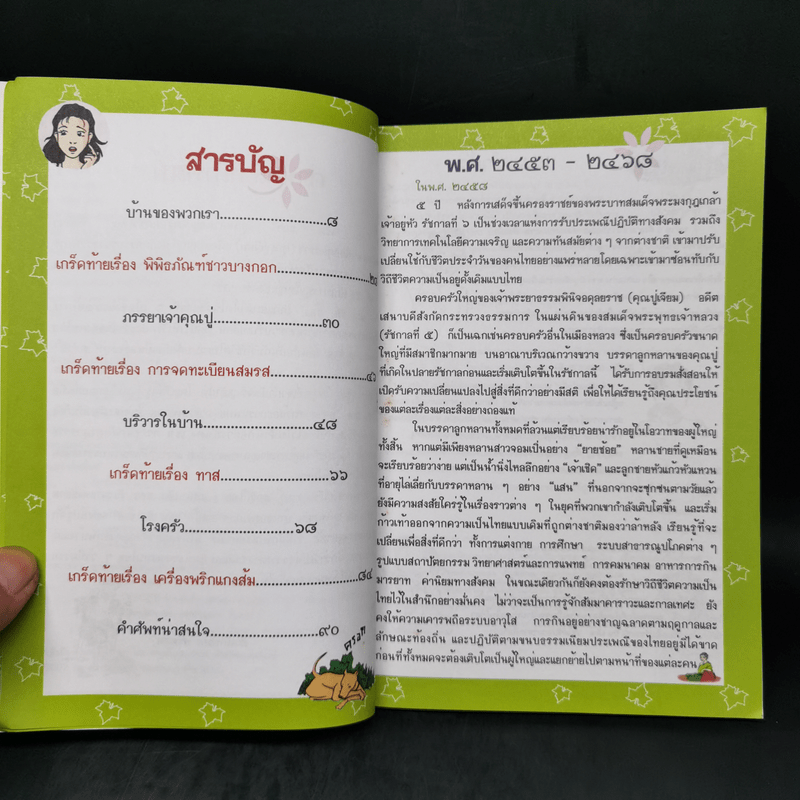 สารบัญ
บ้านของพวกเรา..................๘
เกร็ดท้ายเรื่อง พิพิธภัณฑ์ชาวบางกอก..................
ภรรยาเจ้าคุณปู่..................๓๐
เกร็ดท้ายเรื่อง การจดทะเบียนสมรส..................๔๖
บริวารในบ้าน..................๔๘
เกร็ดท้ายเรื่อง ทาส..................๖๖
โรงครัว..................๖๘
เกร็ดท้ายเรื่อง เครื่องพริกแกงส้ม..................๘๔
คำศัพท์น่าสนใจ..................๙๐
พ.ศ. ๒๔๕๓ - ๒๔๖๘
ในพ.ศ. ๒๔๕๘
๕ ปี หลังการเสด็จขึ้นครองราชย์ของพระบาทสมเด็จพระมงกุฎเกล้า
เจ้าอยู่หัว รัชกาลที่ ๖ เป็นช่วงเวลาแห่งการรับประเพณีปฏิบัติทางสังคม รวมถึง
วิทยาการเทคโนโลยีความเจริญ และความทันสมัยต่าง ๆ จากต่างชาติ เข้ามาปรับ
เปลี่ยนใช้กับชีวิตประจำวันของคนไทยอย่างแพร่หลายโดยเฉพาะเข้ามาซ้อนทับกับ
วิถีชีวิตความเป็นอยู่ดั้งเดิมแบบไทย
ครอบครัวใหญ่ของเจ้าพระยาธรรมพินิจอดุลยราช (คุณปู่เจียม) อดีต
เสนาบดีสังกัดกระทรวงธรรมการ ในแผ่นดินของสมเด็จพระพุทธเจ้าหลวง
(รัชกาลที่ ๕) ก็เป็นเฉกเช่นครอบครัวอื่นในเมืองหลวง ซึ่งเป็นครอบครัวขนาด
ใหญ่ที่มีสมาชิกมากมาย บนอาณาบริเวณกว้างขวาง บรรดาลูกหลานของคุณปู่
ที่เกิดในปลายรัชกาลก่อนและเริ่มเติบโตขึ้นในรัชกาลนี้ ได้รับการอบรมสั่งสอนให้
เปิดรับความเปลี่ยนแปลงไปสู่สิ่งที่ดีกว่าอย่างมีสติ เพื่อให้ได้เรียนรู้ถึงคุณประโยชน์
ของแต่ละเรื่องแต่ละสิ่งอย่างถ่องแท้
ในบรรดาลูกหลานทั้งหมดที่ล้วนแต่เรียบร้อยน่ารักอยู่ในโอวาทของผู้ใหญ่
ทั้งสิ้น หากแต่มีเพียงหลานสาวจอมเป็นอย่าง “ยายช้อย” หลานชายที่ดูเหมือน
จะเรียบร้อยว่าง่าย แต่เป็นน้ำนิ่งไหลลึกอย่าง “เจ้าเชิด” และลูกชายหัวแก้วหัวแหวน
ที่อายุไล่เลี่ยกับบรรดาหลาน ๆ อย่าง “แสน” ที่นอกจากจะซุกซนตามวัยแล้ว
ยังมีความสงสัยใคร่รู้ในเรื่องราวต่าง ๆ ในยุคที่พวกเขากำลังเติบโตขึ้น และเริ่ม
ก้าวเท้าออกจากความเป็นไทยแบบเดิมที่ถูกต่างชาติมองว่าล้าหลัง เรียนรู้ที่จะ
เปลี่ยนเพื่อสิ่งที่ดีกว่า ทั้งการแต่งกาย การศึกษา ระบบสาธารณูปโภคต่าง ๆ
รูปแบบสถาปัตยกรรม วิทยาศาสตร์และการแพทย์ การคมนาคม อาหารการกิน
มารยาท ค่านิยมทางสังคม ในขณะเดียวกันก็ยังคงต้องรักษาวิถีชีวิตความเป็น
ไทยไว้ในสำนึกอย่างมั่นคง ไม่ว่าจะเป็นการรู้จักสัมมาคาราวะและกาลเทศะ ยัง
คงให้ความเคารพถือระบบอาวุโส การกินอยู่อย่างชาญฉลาดตามฤดูกาลและ
ลักษณะท้องถิ่น และปฏิบัติตามขนบธรรมเนียมประเพณีของไทยอยู่มิได้ขาด
ก่อนที่ทั้งหมดจะต้องเติบโตเป็นผู้ใหญ่และแยกย้ายไปตามหน้าที่ของแต่ละคน